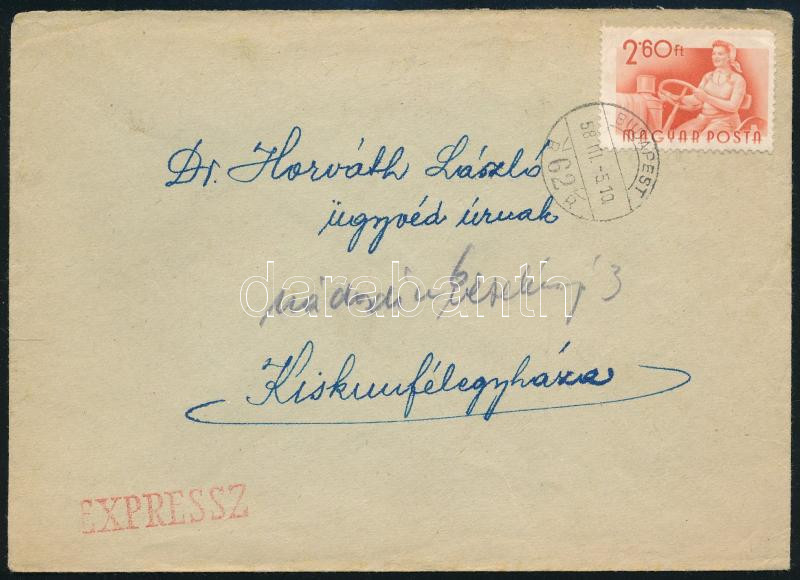 2·60 ft
MAGYAR POSTA
BUDAPEST
58 III. -5. 10.
62
Dr. Horváth László
ügyvéd úrnak
3
darabanth
Kiskunfélegyháza
EXPRESSZ